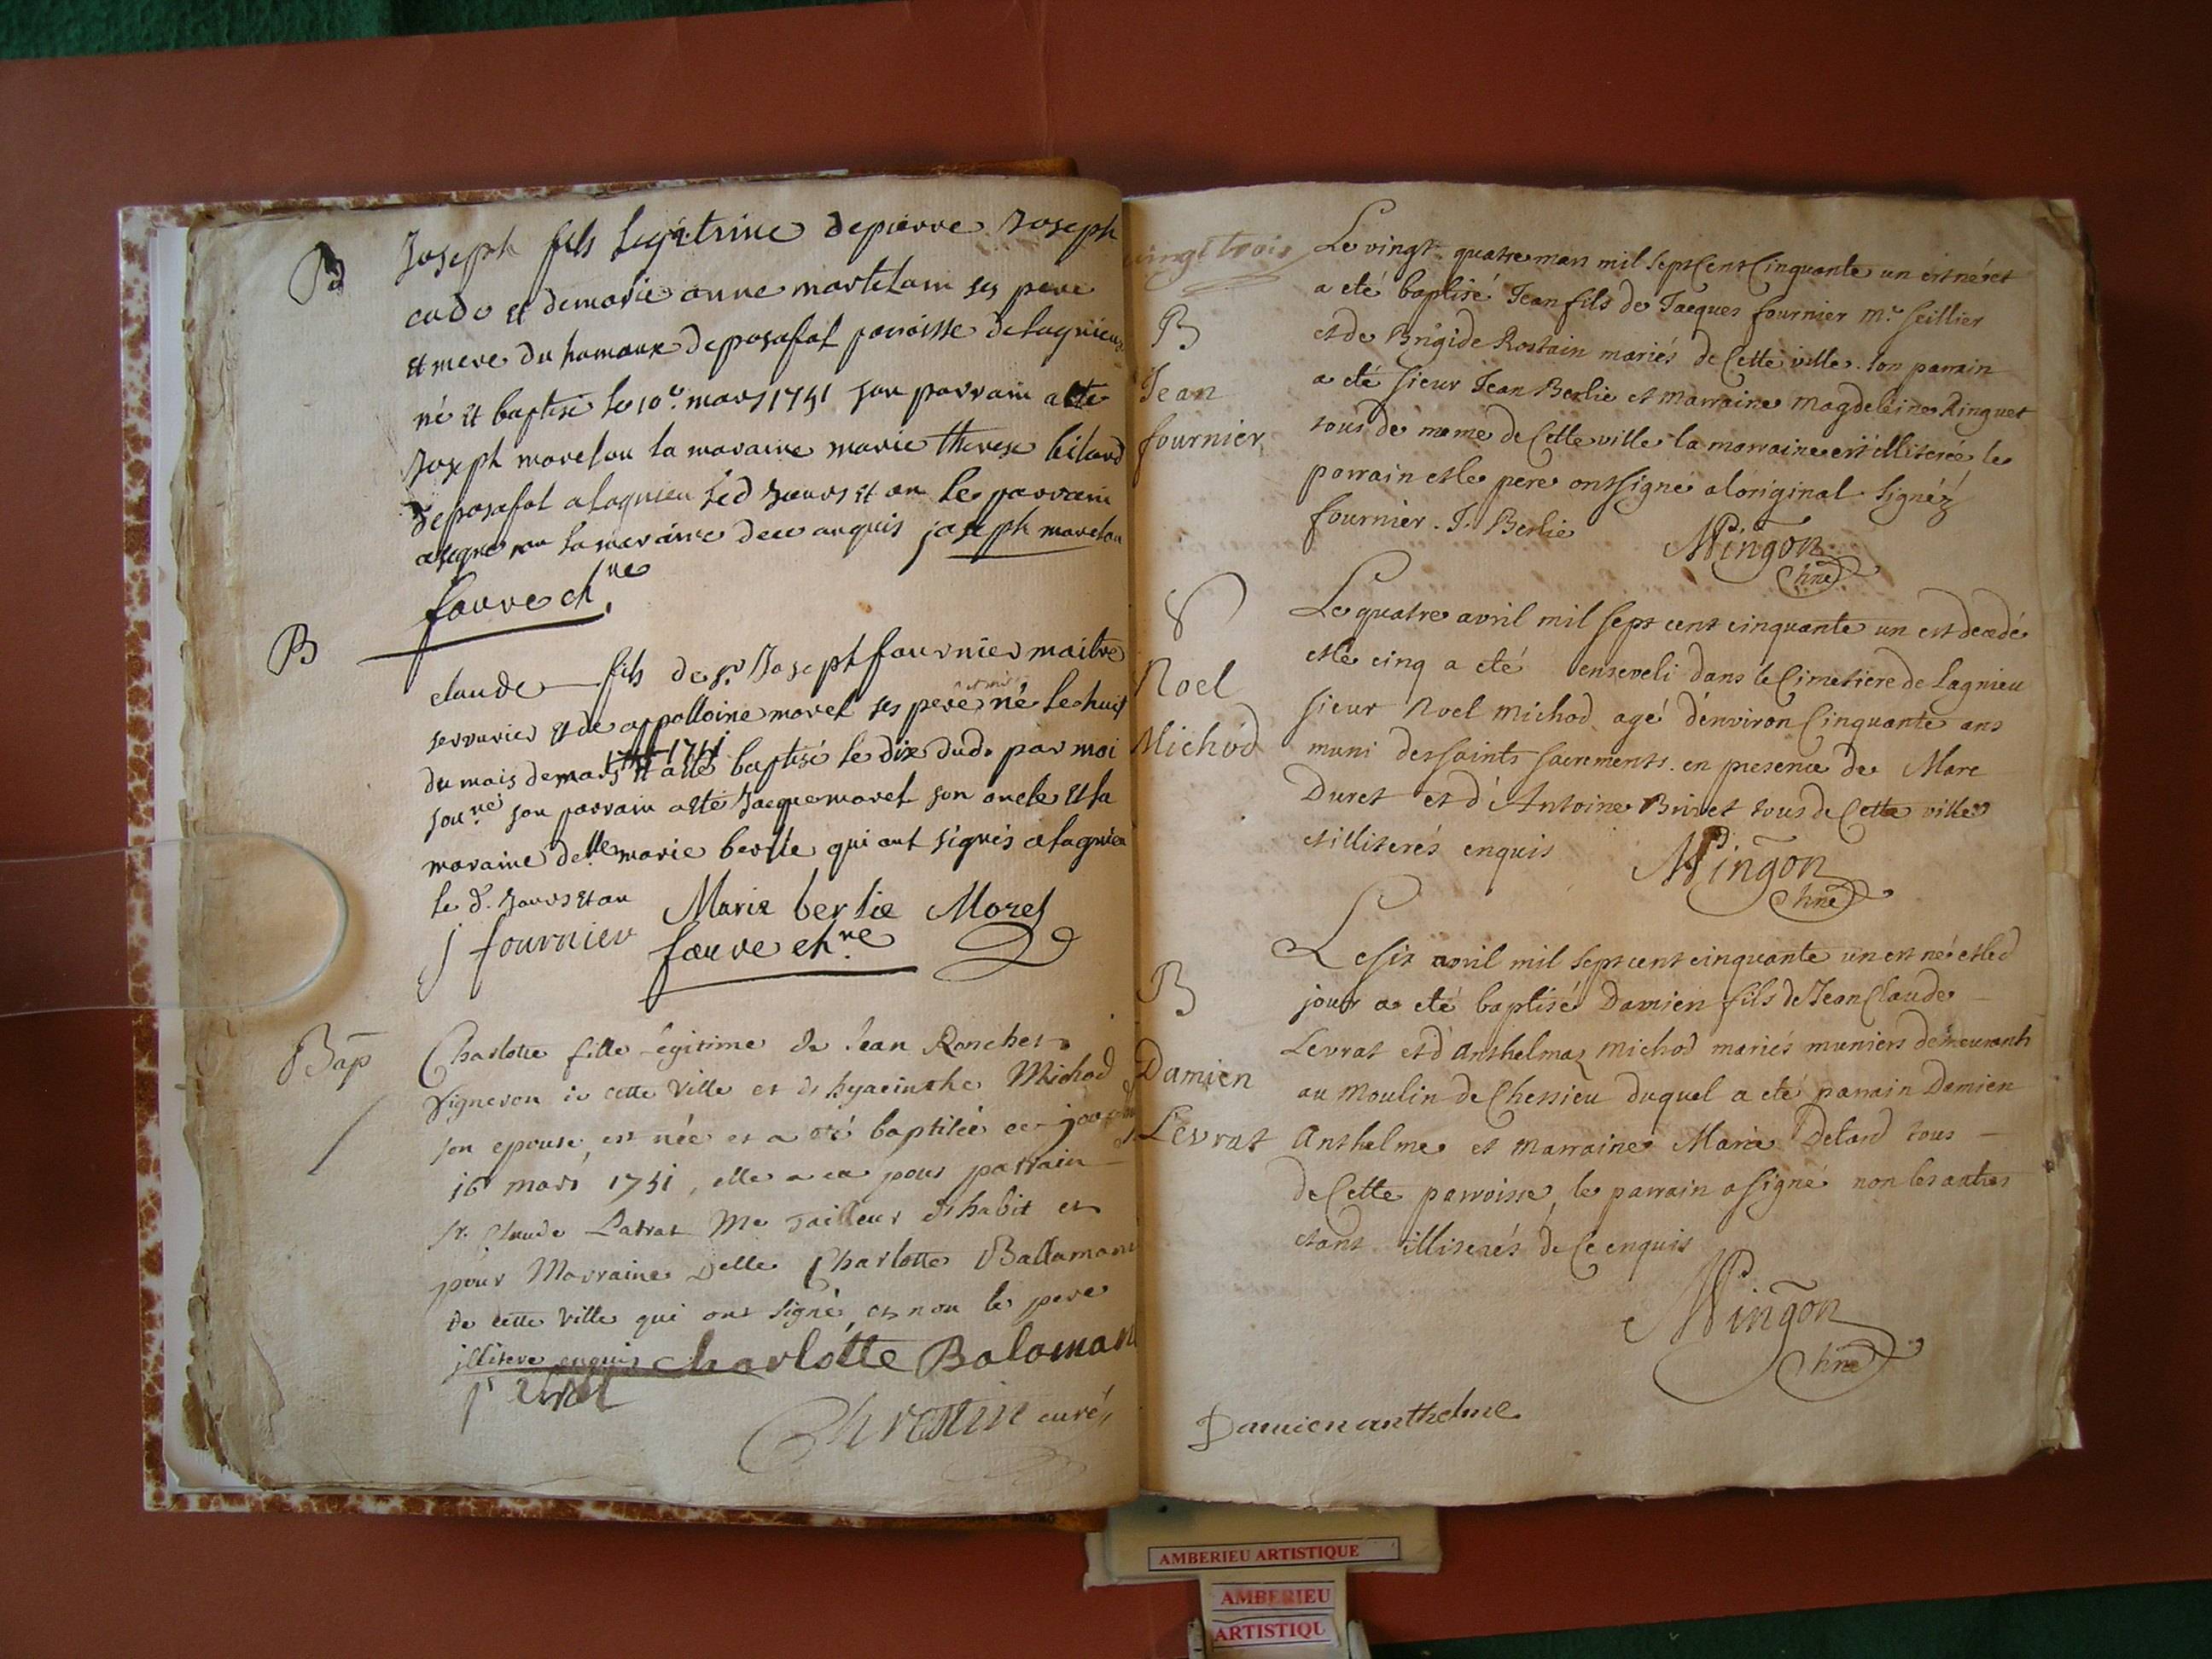 B
Joseph fils legitime de pierre Joseph
cade et de marie anne martelain ses pere
et mere du hamaux de posafol paroisse de lagnieu
né et baptisé le 10e. mars 1751 son parrain a été
Joseph morelou la maraine marie therese bilard
de posafol a lagnieu led jours et an le parrain
a signé non la maraine de ce anquis joseph morelou
favre chne
B
claude fils de sr. Joseph fournier maitre
serrurier et de appolloine morel ses pere né le huit
du mois de mars 1751 et a été baptisé le dix dud. par moi
sou.né son parrain a été Jacque morel son oncle et la
maraine delle marie berlie qui ont signés a lagnieu
le d. jours et an Marie berlie Morel
j fournier favre chne
Bap
Charlotte fille legitime de Jean Ranchet
Vigneron de cette Ville et de hyacinthe Michod
son epouse, est née et a été baptisée ce jour
16 mars 1751, elle a eu pour parrain
sr. Claude Latrat Me Tailleur d'habit et
pour Marraine Delle Charlotte Ballaman
de cette Ville qui ont signé, et non le pere
illitere enquis charlotte Balaman
Chrestin curé
vingt trois
Le vingt quatre mars mil sept Cent Cinquante un est né et
a eté baptisé Jean fils de Jacques fournier Me. seillier
et de Brigide Rostain mariés de Cette ville. son parrain
a eté sieur Jean Berlie et marraine Magdeleine Ringuet
tous de meme de Cette ville la marraine est illiterée le
parrain et le pere ont signé a l'original signéz
fournier. J. Berlie Mingon
chne
B
Jean
fournier
Le quatre avril mil sept cent cinquante un est decedé
et le cinq a eté enseveli dans le Cimetiere de Lagnieu
sieur Noel Michod agé d'environ Cinquante ans
muni des saints sacrements. en presence de Marc
Duret et d'Antoine Brivet tous de Cette ville
et illiterés enquis Mingon
chne
Noel
Michod
Le six avril mil sept cent cinquante un est né et led
jour a eté baptisé Damien fils de Jean Claude
Levrat et d'Anthelmaz Michod mariés muniers demeurants
au Moulin de Chessieu duquel a eté parrain Damien
Anthelme et Marraine Marie Delard tous
de Cette parroisse, le parrain a signé non les autres
etant illiterés de Ce enquis
Mingon
chne
B
Damien
Levrat
Damien anthelme
AMBERIEU ARTISTIQUE
AMBERIEU
ARTISTIQU